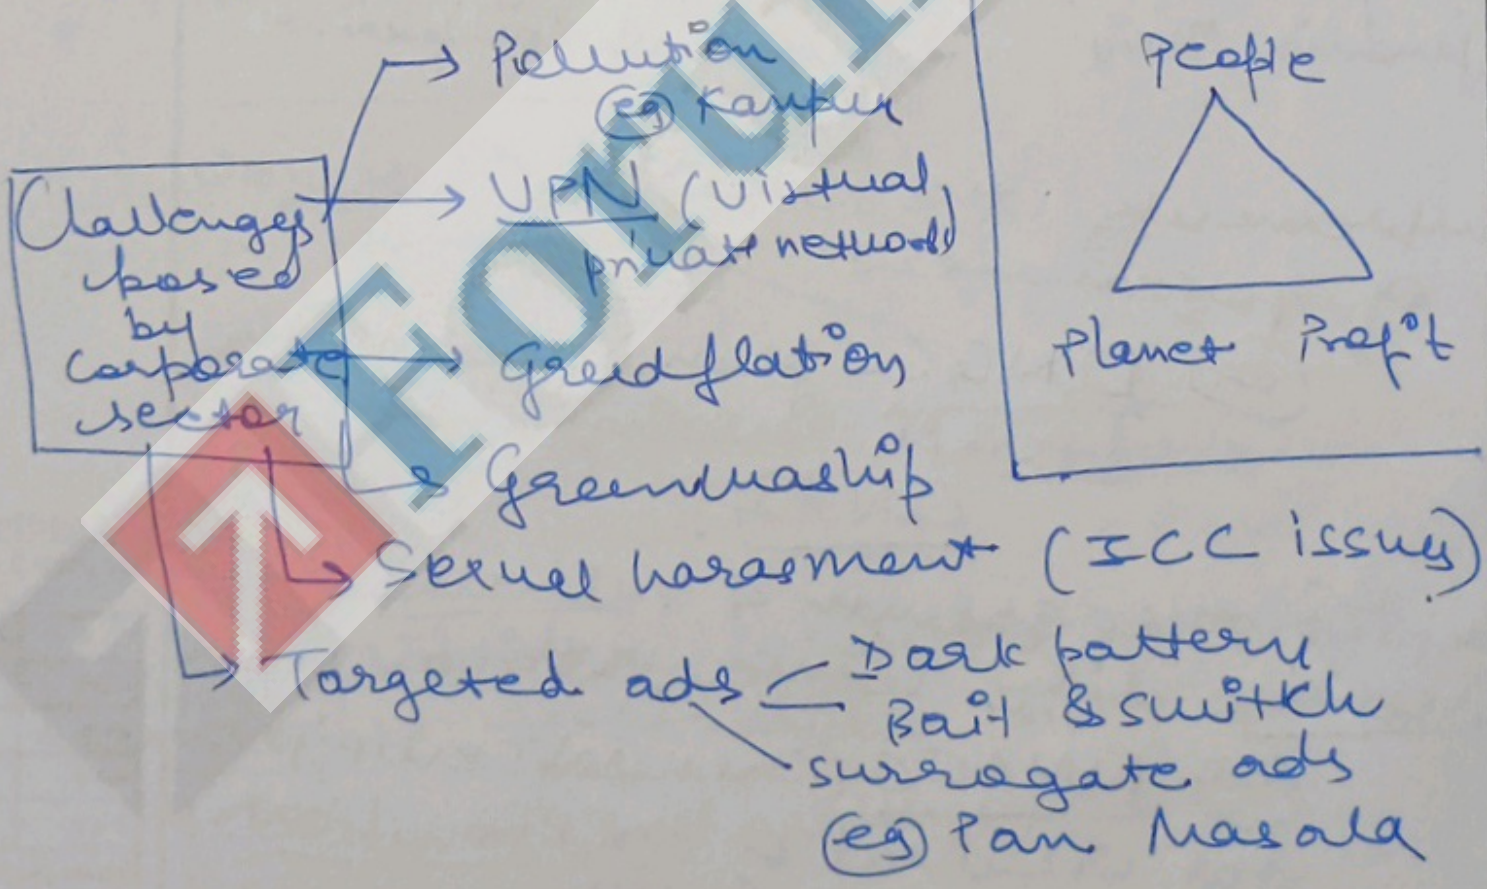 Pollution
eg Kanpur
Challenges
posed
by
Corporate
sector
VPN (Virtual
private network)
Greedflation
Greenwaship
Sexual harasment (ICC issues)
Targeted ads
Dark pattern
Bait & switch
surrogate ads
eg Pan Masala
People
Planet Profit
Forum